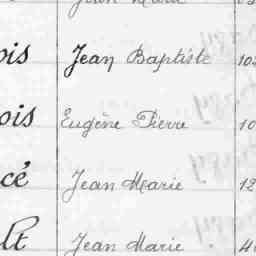 Jean Marie
ois Jean Baptiste 102
ois Eugène Pierre 10
cé Jean Marie 12
lt Jean Marie 4